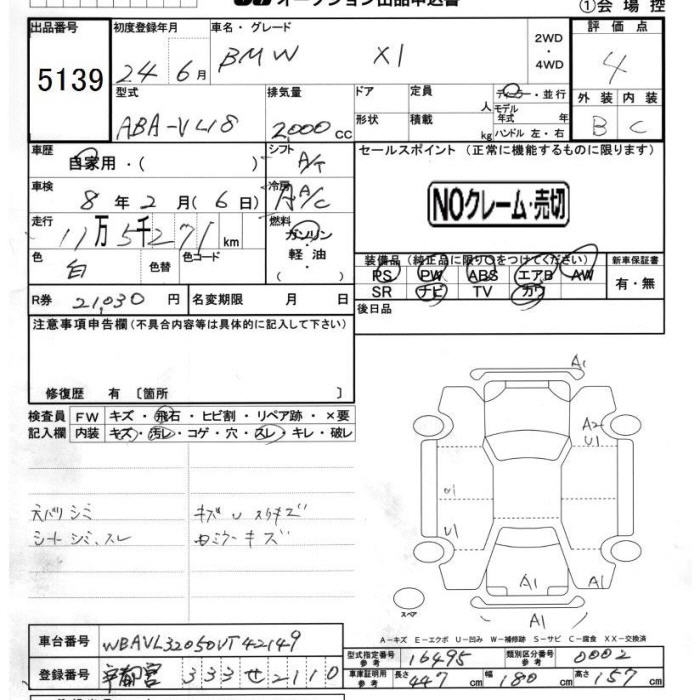 オークション出品申込書
①会場控
出品番号 5139
初度登録年月 24年6月
車名・グレード BMW X1
2WD・4WD
評価点 4
型式 ABA-VL18
排気量 2,000cc
ドア 形状
定員 人 積載 kg
ディーラー・並行
モデル年式 年
ハンドル 左・右
外装 B 内装 C
車歴 自家用・( )
シフト A/T
セールスポイント (正常に機能するものに限ります)
車検 8年2月(6日)
冷房 AA/C
NOクレーム・売切
走行 11万5千271km
燃料 ガソリン・軽油・( )
色 白 色替 色コード
装備品 (純正品に限り○をつけてください)
新車保証書 有・無
PS PW ABS エアB AW
SR ナビ TV カワ
R券 21,030円 名変期限 月 日
後日品
注意事項申告欄(不具合内容等は具体的に記入して下さい)
修復歴 有 〔箇所 〕
検査員記入欄
FW キズ・飛石・ヒビ割・リペア跡・×要
内装 キズ・汚レ・コゲ・穴・スレ・キレ・破レ
天バリシミ
シートシミ、スレ
A1
A2
U1
U1
U1
A1
A1
A1
スペア
A-キズ E-エクボ U-凹み W-補修跡 S-サビ C-腐食 XX-交換済
車台番号 WBAVL32050VT42149
登録番号 宇都宮 333 せ 2110
型式指定番号 参考 16495 類別区分番号 参考 0002
車庫証明用 参考 長さ 447 cm 幅 180 cm 高さ 157 cm